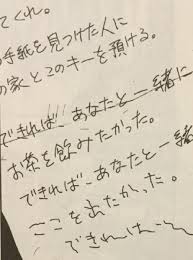 てくれ。
手紙を見つけた人に
の家とこのキーを預ける。
できれば…あなたと一緒に
お茶を飲みたかった。
できれば…あなたと一緒
ここを出たかった。
できれば…